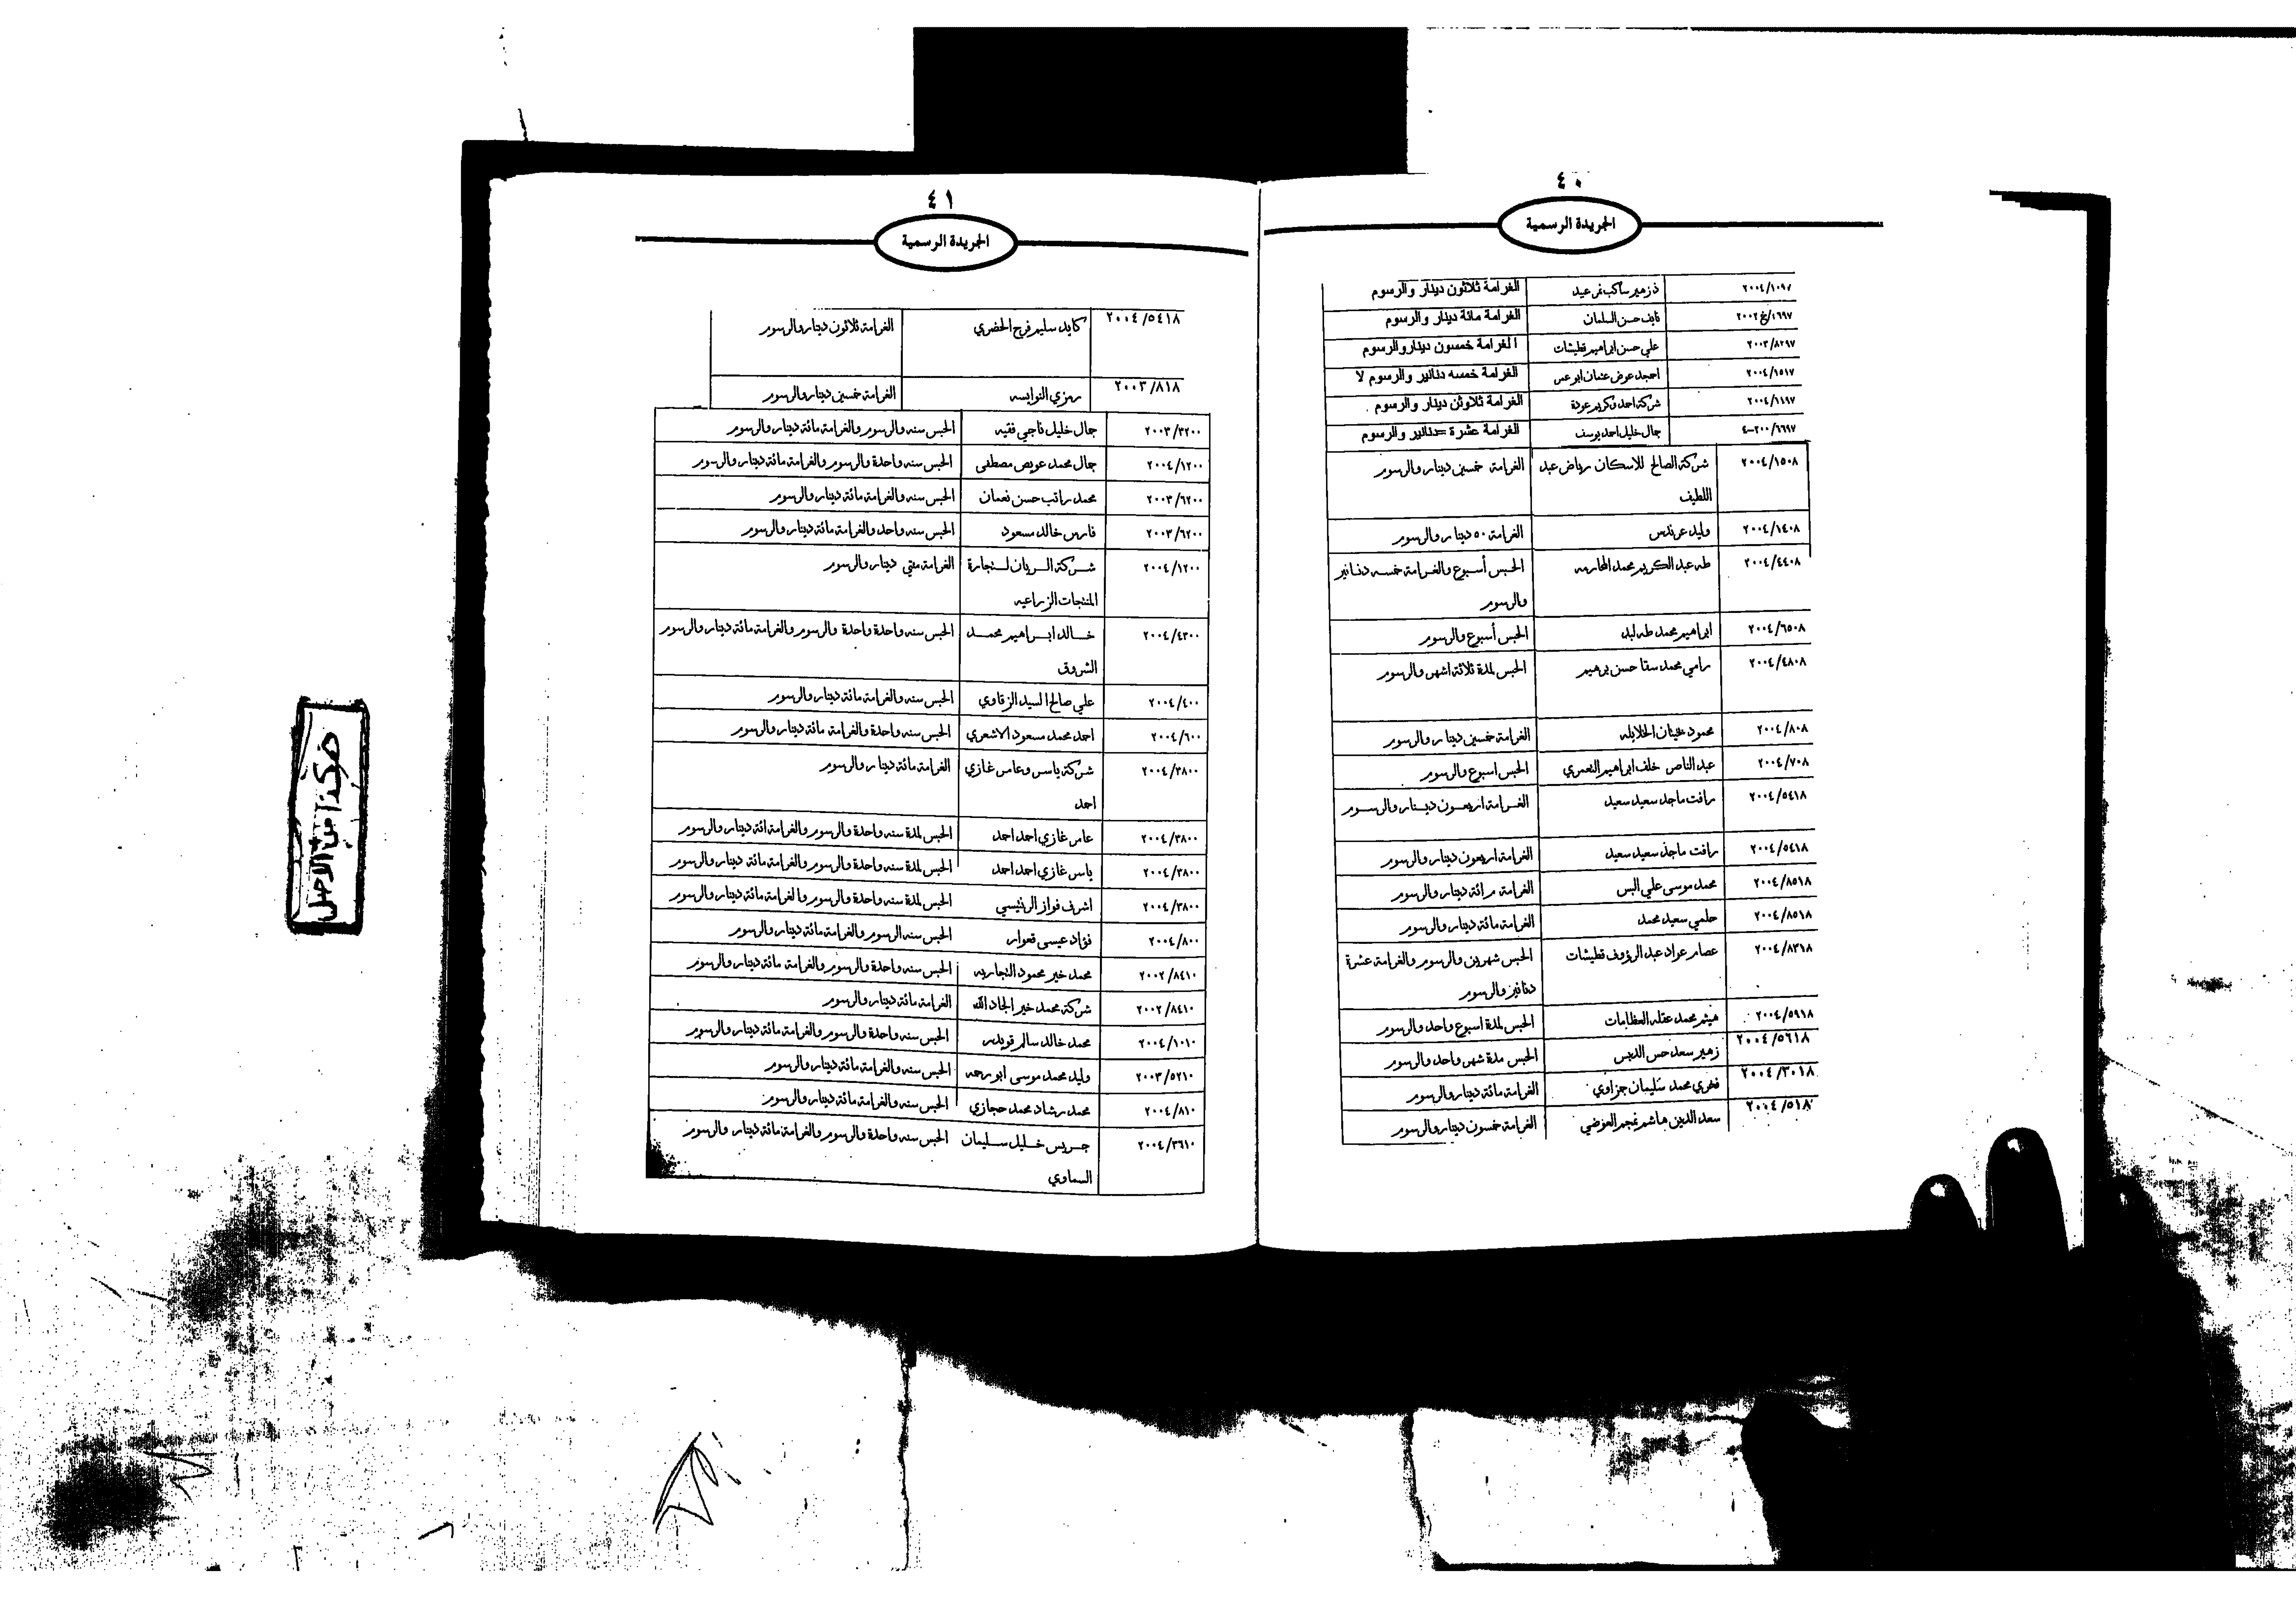 ٤٠
الجريدة الرسمية
٢٠٠٤/١٠٩٧ ذ زهير ساكب نمر عيد الغرامة ثلاثون دينار والرسوم
١٦٩٧/خ٢٠٠٢ نايف حسن السلمان الغرامة مائة دينار والرسوم
٢٠٠٣/٨٢٩٧ علي حسن ابراهيم قطيشات الغرامة خمسون دينار والرسوم
٢٠٠٤/١٥١٧ احمد عوض عثمان ابو عس الغرامة خمسه دنانير والرسوم لا
٢٠٠٤/١١٩٧ شركة احمد وكريم عودة الغرامة ثلاوثن دينار والرسوم
٤-٢٠٠/٦٦٩٧ جمال خليل احمد يوسف الغرامة عشرة =دنانير والرسوم
٢٠٠٤/١٥٠٨ شركة الصالح للاسكان رياض عبد الغرامة خمسين دينار والرسوم
اللطيف
٢٠٠٤/١٤٠٨ وليد عرندس الغرامة ٥٠ دينار والرسوم
٢٠٠٤/٤٤٠٨ طه عبد الكريم محمد المحارمه الحبس أسبوع والغرامة خمسه دنانير
والرسوم
٢٠٠٤/٦٥٠٨ ابراهيم محمد طه لبد الحبس أسبوع والرسوم
٢٠٠٤/٤٨٠٨ رامي محمد سقا حسن برهيم الحبس لمدة ثلاثة اشهر والرسوم
٢٠٠٤/٨٠٨ محمود الخلايله الغرامة خمسين دينار والرسوم
٢٠٠٤/٧٠٨ عبد الناصر خلف ابراهيم النعمري الحبس اسبوع والرسوم
٢٠٠٤/٥٤١٨ رافت ماجد سعيد سعيد الغرامة اربعون دينار والرسوم
٢٠٠٤/٥٤١٨ رافت ماجد سعيد سعيد الغرامة اربعون دينار والرسوم
٢٠٠٤/٨٥١٨ محمد موسى علي البس الغرامة مرائة دينار والرسوم
٢٠٠٤/٨٥١٨ حلمي سعيد محمد الغرامة مائة دينار والرسوم
٢٠٠٤/٨٣١٨ عصام عواد عبد الرؤوف قطيشات الحبس شهرين والرسوم والغرامة عشرة
دنانير والرسوم
٢٠٠٤/٥٩١٨ هيثم محمد عقله العظامات الحبس لمدة اسبوع واحد والرسوم
٢٠٠٤/٥٦١٨ زهير سعد حس الدبس الحبس مدة شهر واحد والرسوم
٢٠٠٤/٣٠١٨ فخري محمد سليمان جزاوي الغرامة مائة دينار والرسوم
٢٠٠٤/٥١٨ سعد الدين هاشم نجم العوضي الغرامة خمسون دينار والرسوم
٤١
الجريدة الرسمية
٢٠٠٤/٥٤١٨ كايد سليم فرج الحضري الغرامة ثلاثون دينار والرسوم
٢٠٠٣/٨١٨ رمزي النوايسه الغرامة خمسين دينار والرسوم
٢٠٠٣/٣٢٠٠ جمال خليل ناجي فقيه الحبس سنه والرسوم والغرامة مائة دينار والرسوم
٢٠٠٤/١٢٠٠ جمال محمد عويص مصطفى الحبس سنه واحدة والرسوم والغرامة مائة دينار والرسوم
٢٠٠٣/٦٢٠٠ محمد راتب حسن نعمان الحبس سنه والغرامة مائة دينار والرسوم
٢٠٠٣/٦٢٠٠ فارس خالد مسعود الحبس سنه واحد والغرامة مائة دينار والرسوم
٢٠٠٤/١٢٠٠ شركة الريان لتجارة الغرامة مئتي دينار والرسوم
المنتجات الزراعيه
٢٠٠٤/٤٣٠٠ خالد ابراهيم محمد الحبس سنه واحدة واحدة والرسوم والغرامة مائة دينار والرسوم
الشروف
٢٠٠٤/٤٠٠ علي صالح السيد الزقاوي الحبس سنه والغرامة مائة دينار والرسوم
٢٠٠٤/٦٠٠ احمد محمد مسعود الاشعري الحبس سنه واحدة والغرامة مائة دينار والرسوم
٢٠٠٤/٣٨٠٠ شركة ياسر وعامر غازي الغرامة مائة دينار والرسوم
احمد
٢٠٠٤/٣٨٠٠ عامر غازي احمد احمد الحبس لمدة سنه واحدة والرسوم والغرامة ائة دينار والرسوم
٢٠٠٤/٣٨٠٠ ياسر غازي احمد احمد الحبس لمدة سنه واحدة والرسوم والغرامة مائة دينار والرسوم
٢٠٠٤/٣٨٠٠ اشرف فواز الرنتيسي الحبس لمدة سنه واحدة والرسوم والغرامة مائة دينار والرسوم
٢٠٠٤/٨٠٠ فؤاد عيسى قعوار الحبس سنه الرسوم والغرامة مائة دينار والرسوم
٢٠٠٢/٨٤١٠ محمد خير محمود النجاريه الحبس سنه واحدة والرسوم والغرامة مائة دينار والرسوم
٢٠٠٢/٨٤١٠ شركة محمد خير الجاد الله الغرامة مائة دينار والرسوم
٢٠٠٤/١٠١٠ محمد خالد سالم قويدر الحبس سنه واحدة والرسوم والغرامة مائة دينار والرسوم
٢٠٠٣/٥٢١٠ وليد محمد موسى ابو رحمه الحبس سنه والغرامة مائة دينار والرسوم
٢٠٠٤/٨١٠ محمد رشاد محمد حجازي الحبس سنه والغرامة مائة دينار والرسوم
٢٠٠٤/٣٦١٠ جريس خليل سليمان الحبس سنه واحدة والرسوم والغرامة مائة دينار والرسوم
السماوي
هكذا من الاصل